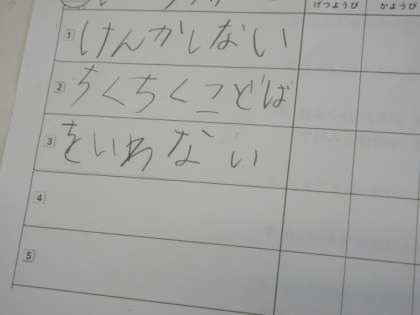 げつようび かようび
1 けんかしない
2 ちくちくことば
3 をいわない
4
5